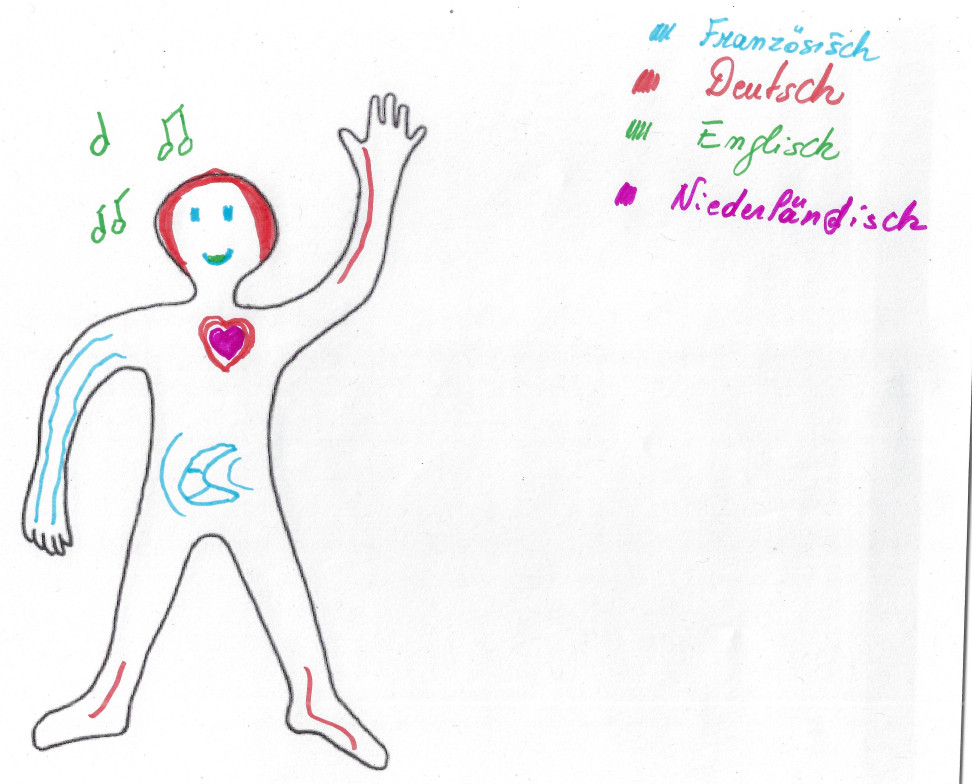 Französisch
Deutsch
Englisch
Niederländisch